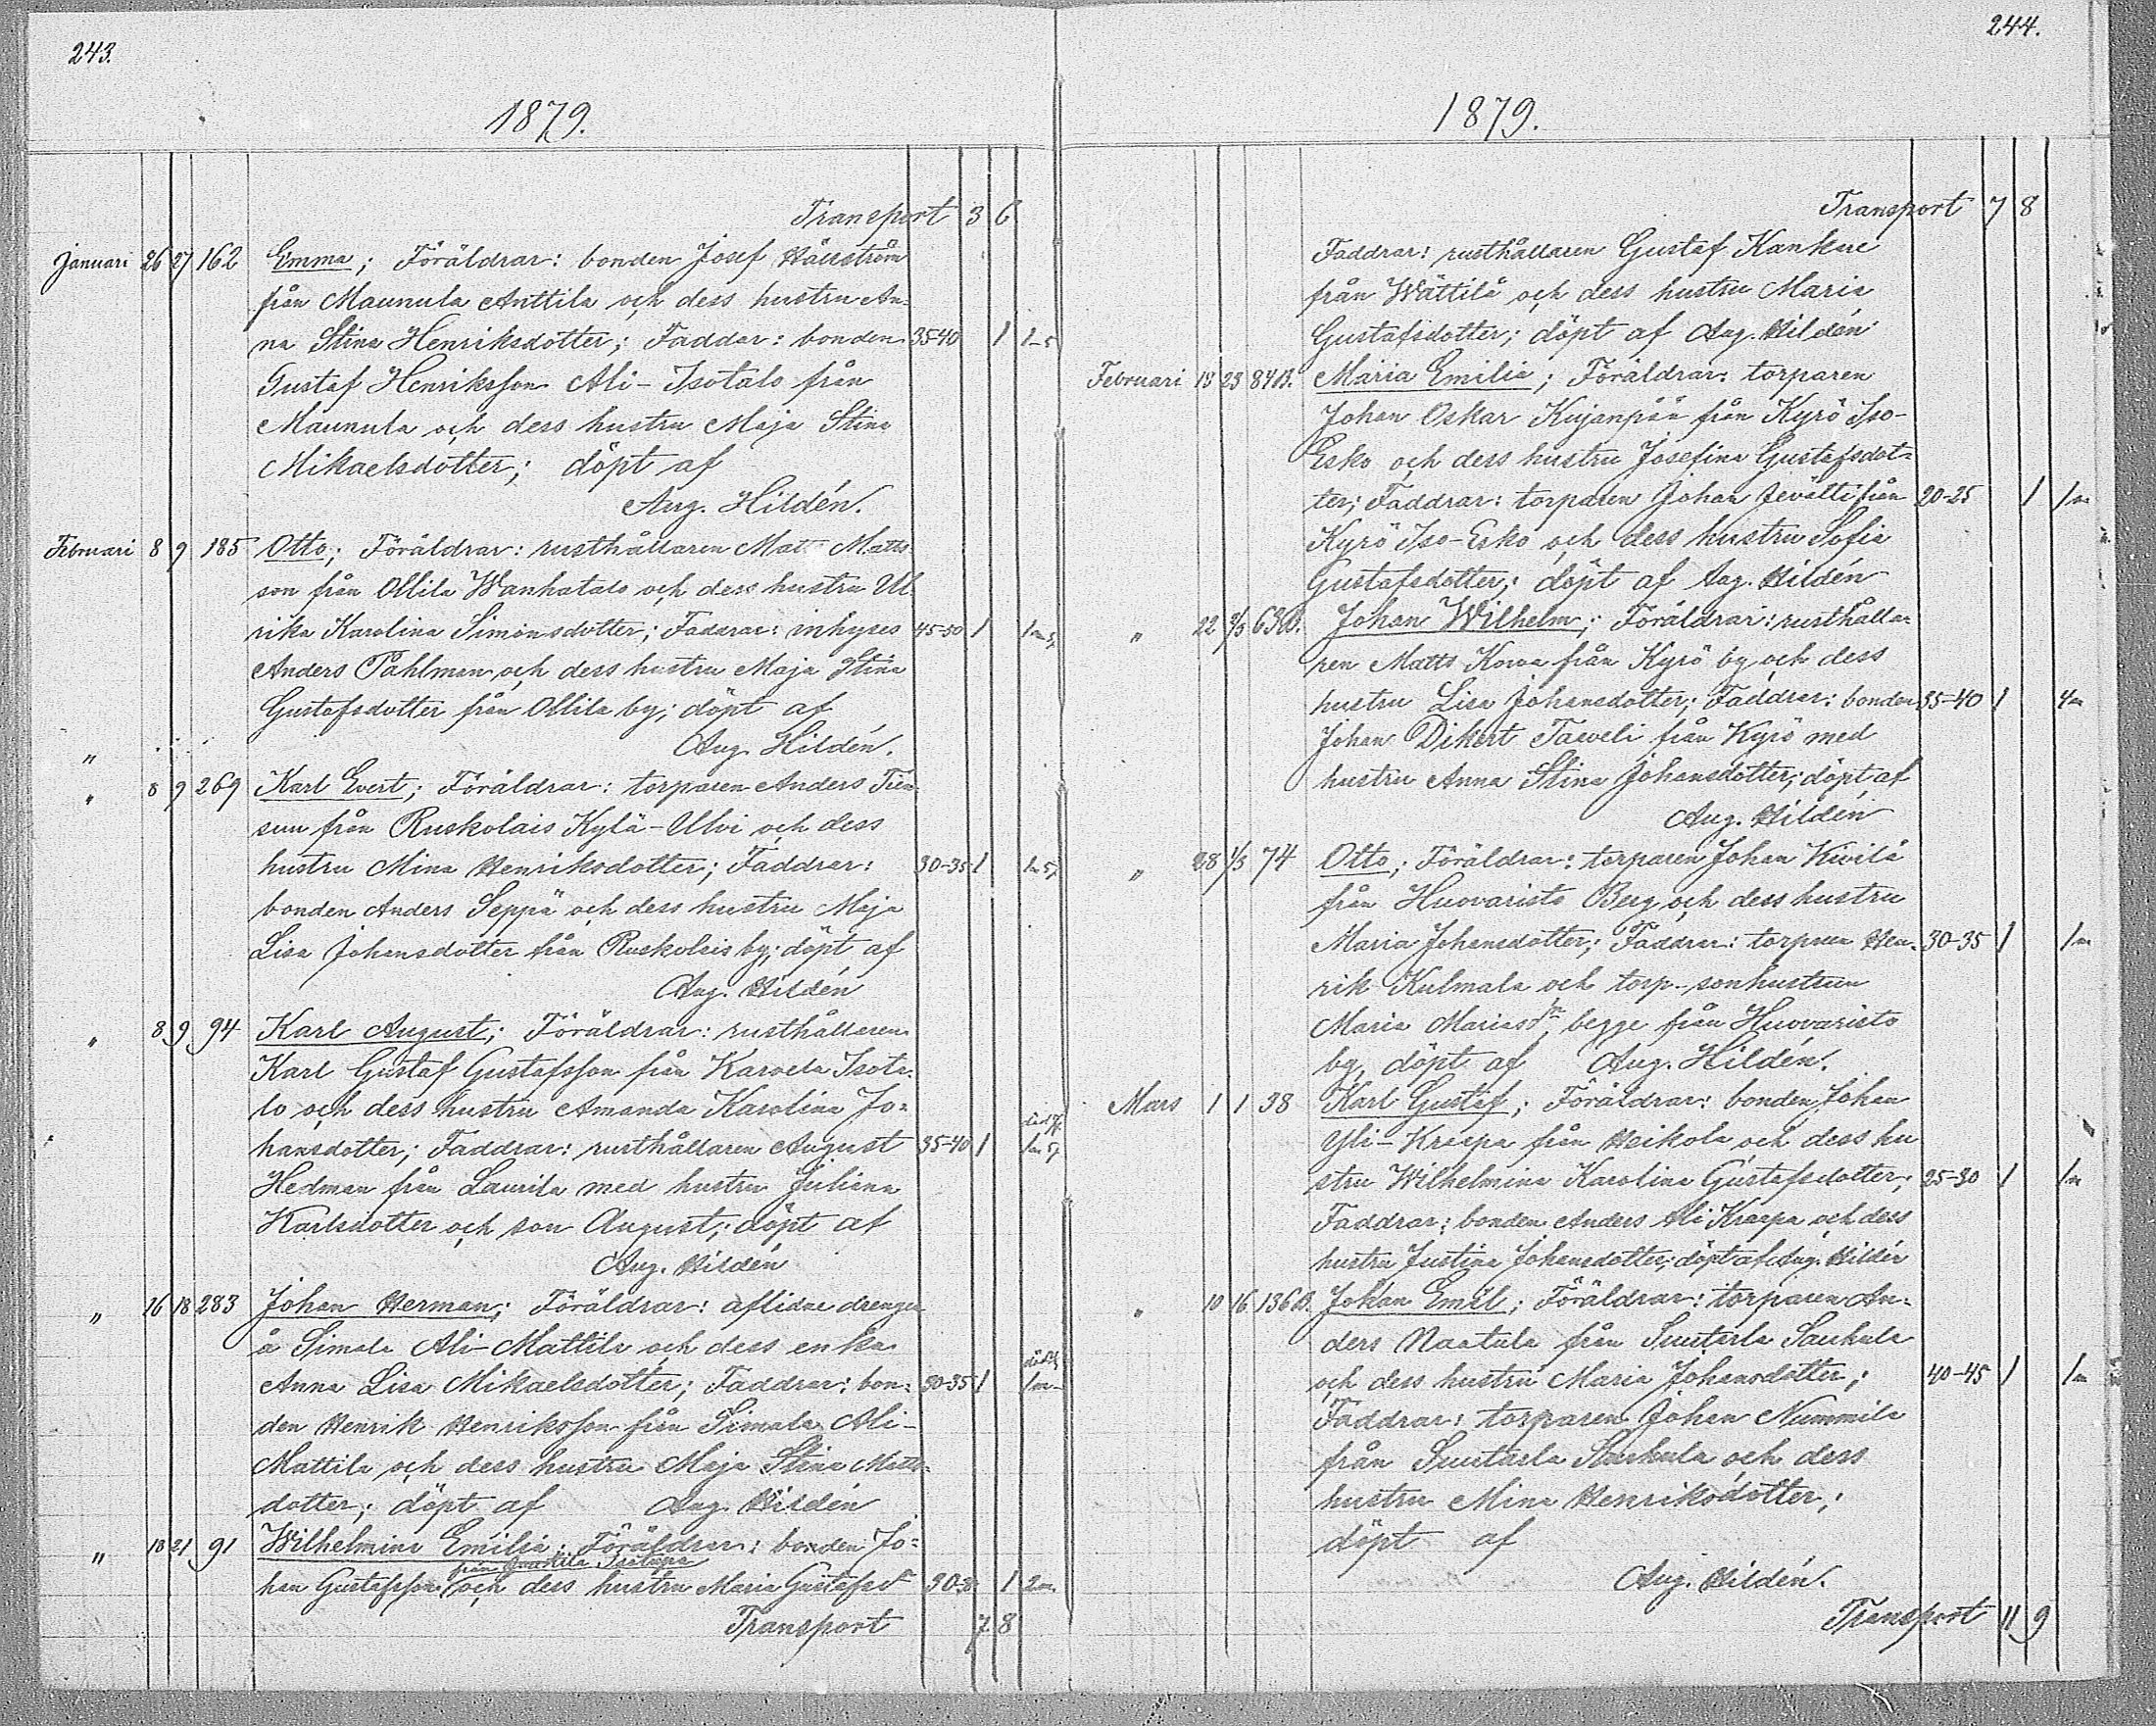 243.
1879.
Transport 3 6
Januari 26 27 162 Emma; Föräldrar: bonden Josef
från Maunula Anttila och dess hustru An-
na Stina Henriksdotter; Faddar: bonden 35-40 1
Gustaf Henriksson Ali-Isotalo från
Maunula och dess hustru Maja Stina
Mikaelsdotter; döpt af
Aug. Hildén.
Februari 8 9 185 Otto; Föräldrar: rusthållaren Matts
son från Ollila Wanhatalo och dess hustru Ul
rika Karolina Simonsdotter; Faddrar: inhyses 45-50 1
Anders Påhlman och dess hustru Maja Stina
Gustafsdotter från Ollila by; döpt af
Aug. Hildén.
"
" 8 9 269 Karl Evert; Föräldrar: torparen Anders
från Ruskolais Kylä-Ulvi och dess
hustru Mina Henriksdotter; Faddrar: 30-35 1
bonden Anders Seppä och dess hustru Maja
Lisa Johansdotter från Ruskolais by; döpt af
Aug. Hildén
" 8 9 94 Karl August; Föräldrar: rusthållaren
Karl Gustaf Gustafsson från Karvela Isota-
lo och dess hustru Amanda Karolina Jo-
hansdotter; Faddrar: rusthållaren August 35-40 1
Hedman från Laurila med hustru Juliana
Karlsdotter och son August; döpt af
Aug. Hildén
" 16 18 283 Johan Herman; Föräldrar: aflidne drengen
å Simala Ali-Mattila och dess enka
Anna Lisa Mikaelsdotter; Faddrar: bon- 30-35 1
den Henrik Henriksson från Simala Ali-
Mattila och dess hustru Maja Stina Matts-
dotter; döpt af Aug. Hildén
" 18 21 91 Wilhelmina Emilia; Föräldrar: bonden Jo-
från
han Gustafsson och dess hustru Maria Gustafsd 1
Transport 7 8
244.
1879.
Transport 7 8
Faddrar: rusthållaren Gustaf Kankare
från Wättilä och dess hustru Maria
Gustafsdotter; döpt af Aug. Hildén
Februari 18 23 84B. Maria Emilia; Föräldrar: torparen
Johan Oskar Kujanpää från Kyrö Iso-
Esko och dess hustru Josefina Gustafsdot-
ter; Faddrar: torparen Johan från 20-25 1
Kyrö Iso-Esko och dess hustru Sofia
Gustafsdotter; döpt af Aug. Hildén
" 22 2/3 63B. Johan Wilhelm; Föräldrar: rusthålla-
ren Matts från Kyrö by och dess
hustru Lisa Johansdotter; Faddrar: bonden 35-40 1
Johan Dikert Taweli från Kyrö med
hustru Anna Stina Johansdotter; döpt af
Aug. Hildén
" 28 1/3 74 Otto; Föräldrar: torparen Johan Kivilä
från Huovaristo Berg och dess hustru
Maria Johansdotter; Faddrar: torparen Hen- 30-35 1
rik Kulmala och torp-sonhustrun
Maria begge från Huovaristo
by, döpt af Aug. Hildén.
Mars 1 1 38 Karl Gustaf; Föräldrar: bonden Johan
Yli-Kraapa från Heikola och dess hu
stru Wilhelmina Karolina Gustafsdotter; 25-30 1
Faddrar: bonden Anders Ali Kraapa och dess
hustru Justina Johansdotter; döpt af Aug. Hildén
" 10 16 136B. Johan Emil; Föräldrar: torparen An-
ders Naatula från Suutarla Saukula
och dess hustru Maria Johansdotter; 40-45 1
Faddrar: torparen Johan Nummila
från Suutarla Saukula och dess
hustru Mina Henriksdotter;
döpt af
Aug. Hildén.
Transport 11 9